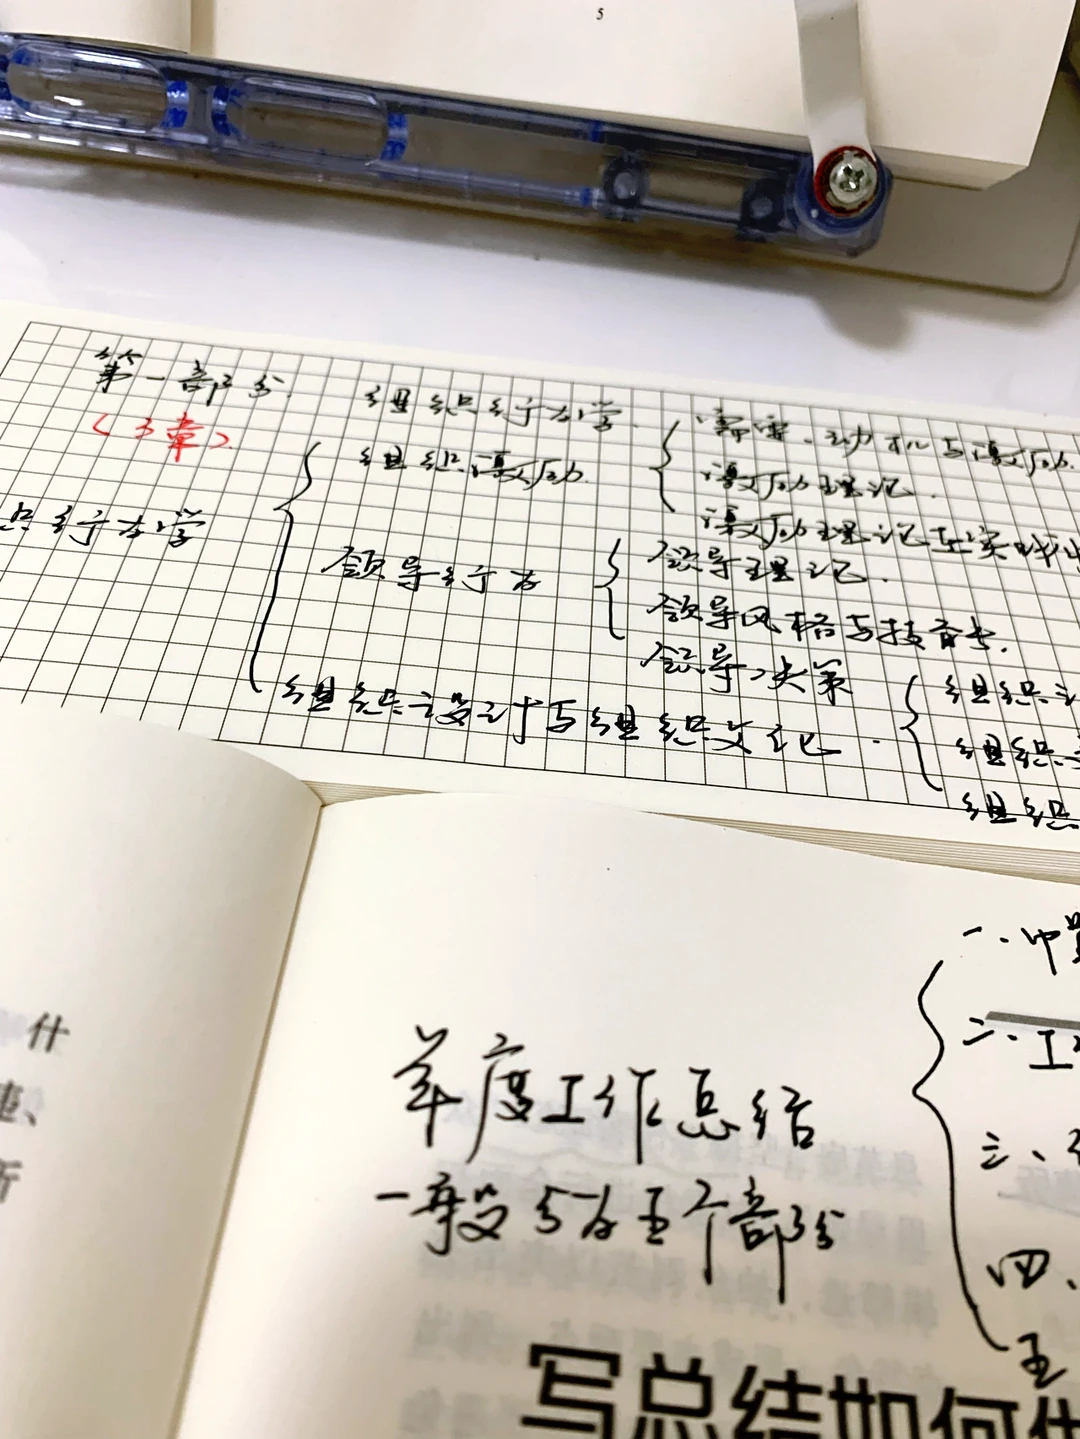 5
第一部分 组织行为学
(3章)
组织激励
需要、动机与激励
激励理论
激励理论在实
织行为学
领导行为
领导理论
领导风格与技
领导决策
组织设计与组织文化
组织
组织
组织
什
所
年度工作总结
一般分为五个部分
一、
二、工
三、
四、
五
写总结如何